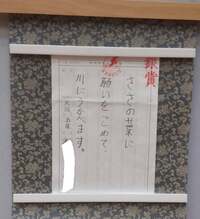 銀賞
ささの葉に
願いをこめて、
川にうかべます。